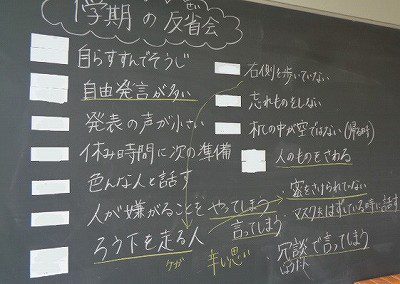 学期の反省会
せい
自らすすんでそうじ
自由発言が多い
発表の声が小さい
休み時間に次の準備
色んな人と話す
人が嫌がることをやってしまう
言ってしまう
ろう下を走る人
ケガ
辛い思い
右側を歩いていない
忘れものをしない
机の中が空ではない(帰る時)
人のものをさわる
・密をさけられていない
・マスクをはずしている時に話す
冗談で言ってしまう